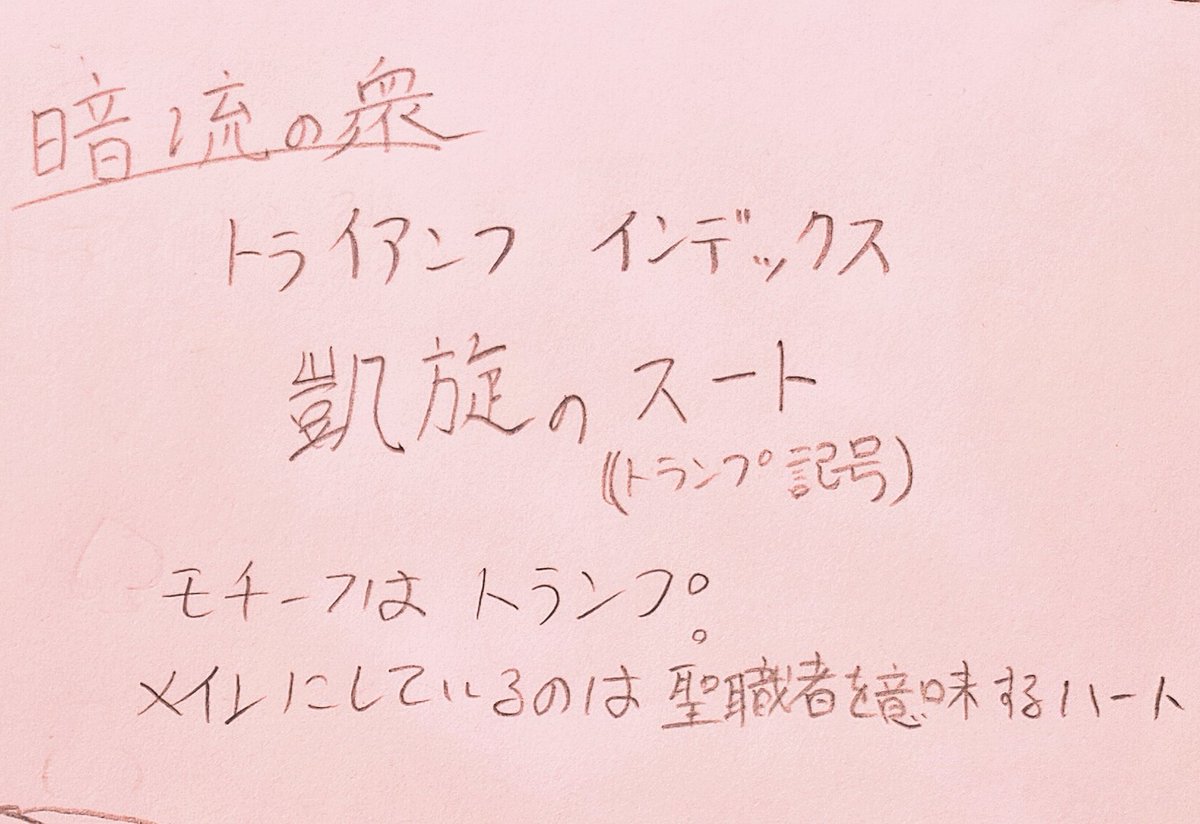 暗流の衆
トライアンフ インデックス
凱旋の スート
((トランプ記号)
モチーフは トランプ。
メインにしているのは 聖職者を意味するハート